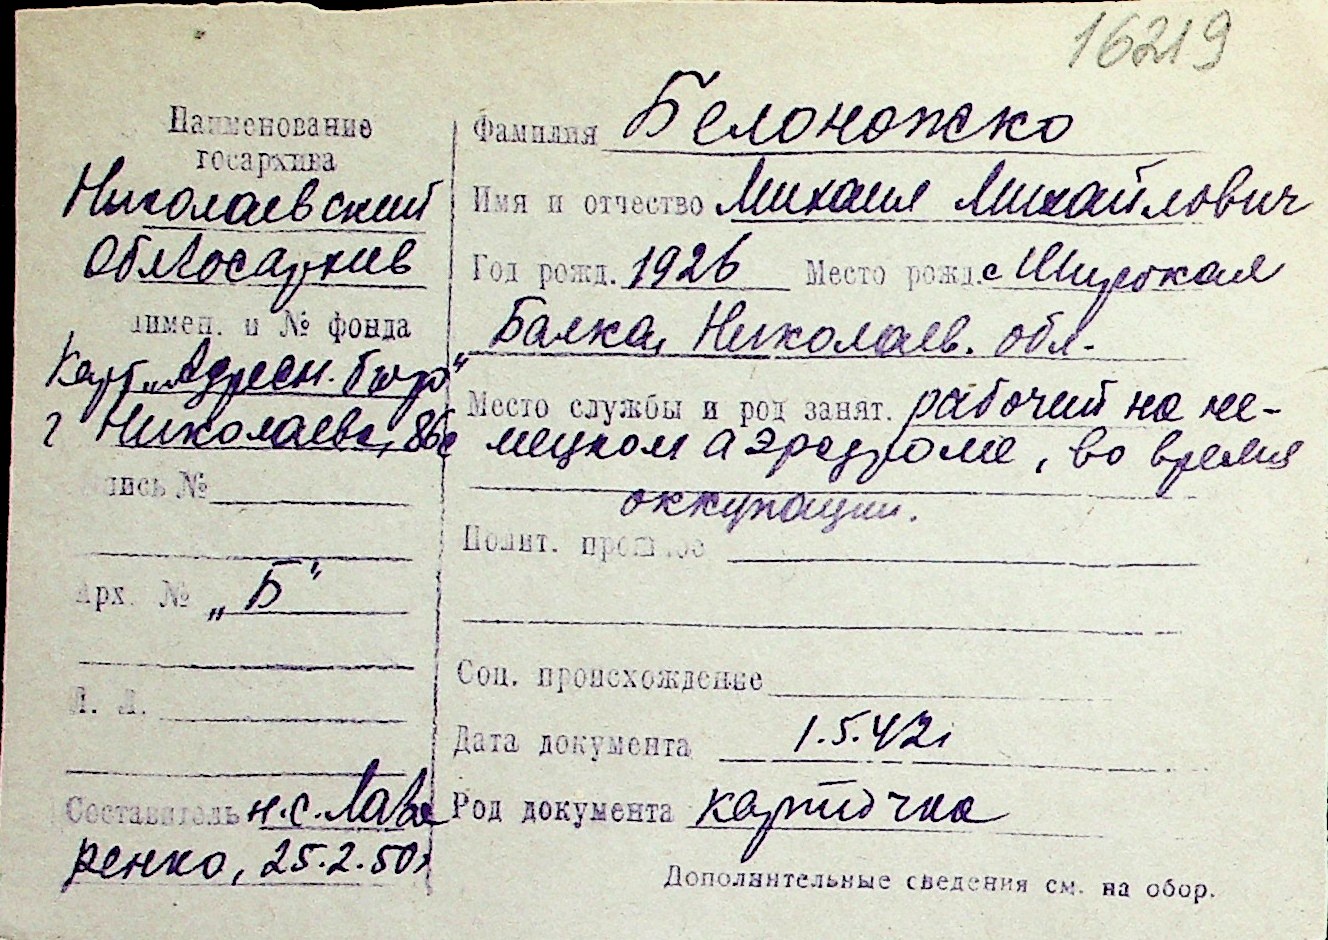 16219
Наименование
госархива
Николаевский
Облгосархив
Наимен. и № фонда
Карт. „Адресн. бюро"
г Николаева, 86с
Опись №
Арх. № „Б"
Л. Л.
Составитель н.с. Лавре
ренко, 25.2.50г
Фамилия Белоножско
Имя и отчество Михаил Михайлович
Год рожд. 1926 Место рожд. с Широкая
Балка, Николаев. обл.
Место службы и род занят. рабочий на не-
мецком аэродроме, во время
оккупации.
Полит. прошлое
Соц. происхождение
Дата документа 1.5.42г
Род документа карточка
Дополнительные сведения см. на обор.